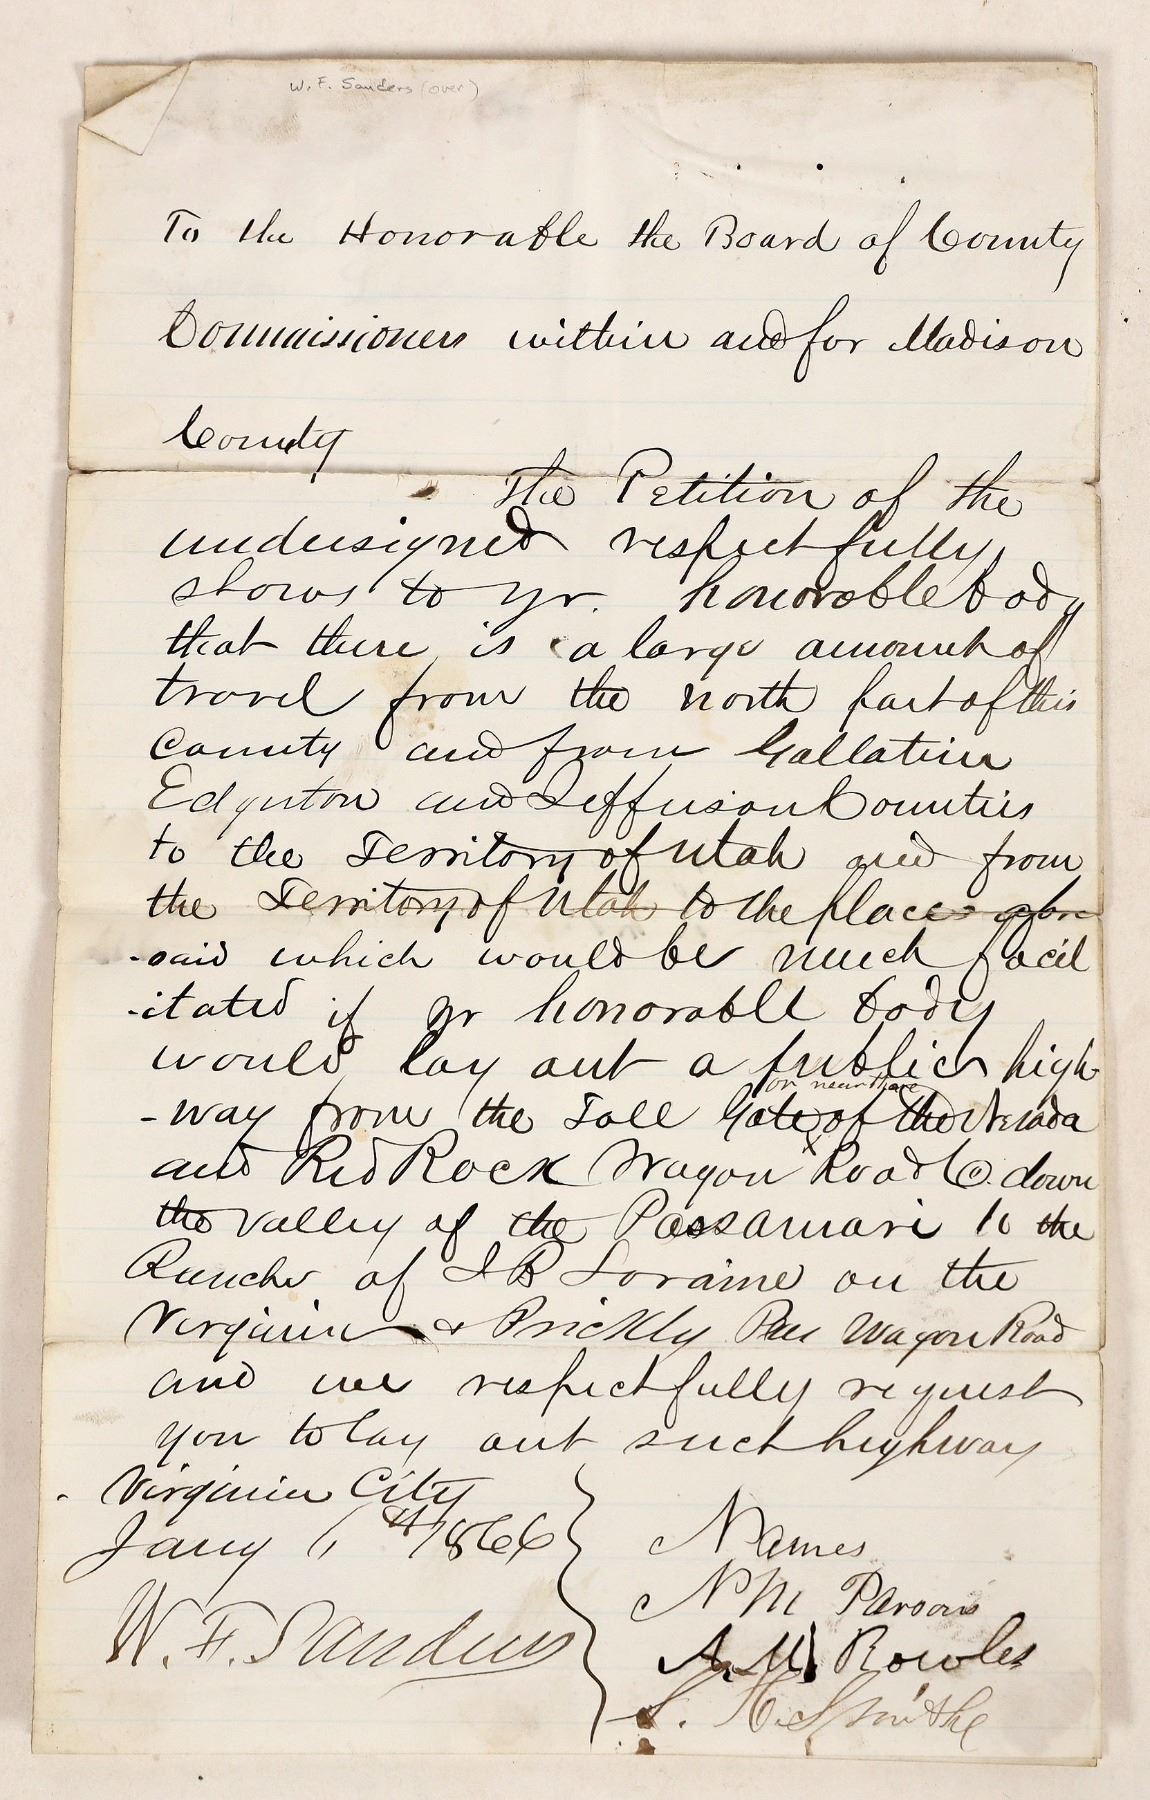 W. F. Sanders (over)
To the Honorable the Board of County
Commissioners within and for Madison
County
The Petition of the
undersigned respectfully
shows to yr. honorable body
that there is a large amount of
travel from the north part of this
County and from Gallatin
Edgerton and Jefferson Counties
to the Territory of Utah and from
the Territory of Utah to the places afore
-said which would be much facil
-itated if yr honorable body
would lay out a public high
on near there
-way from the Toll Gate of the Nevada
and Red Rock Wagon Road Co. down
the valley of the Passamari to the
Ranche of J B Loraine on the
Virginia & Prickly Pear Wagon Road
and we respectfully request
you to lay out such highway
Virginia City
Jany 1st 1866
W. F. Sanders
Names
N M Parsons
A. M. Rowles
S. H. Smithe